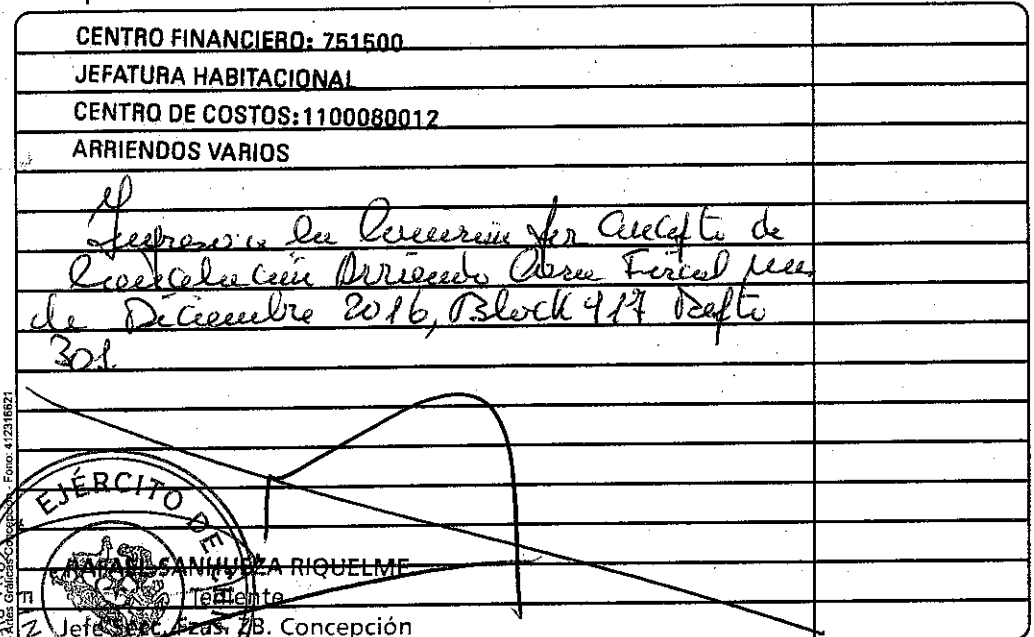 CENTRO FINANCIERO: 751500
JEFATURA HABITACIONAL
CENTRO DE COSTOS: 1100080012
ARRIENDOS VARIOS
Ingreso a la por Concepto de
Cancelación Arriendo Casa Fiscal mes
de Diciembre 2016, Block 417 Depto
301.
EJÉRCITO DE
RAFAEL SANHUEZA RIQUELME
Teniente
Jefe Secc. Fzas. ZB. Concepción
Artes Gráficas Concepción - Fono: 412316621